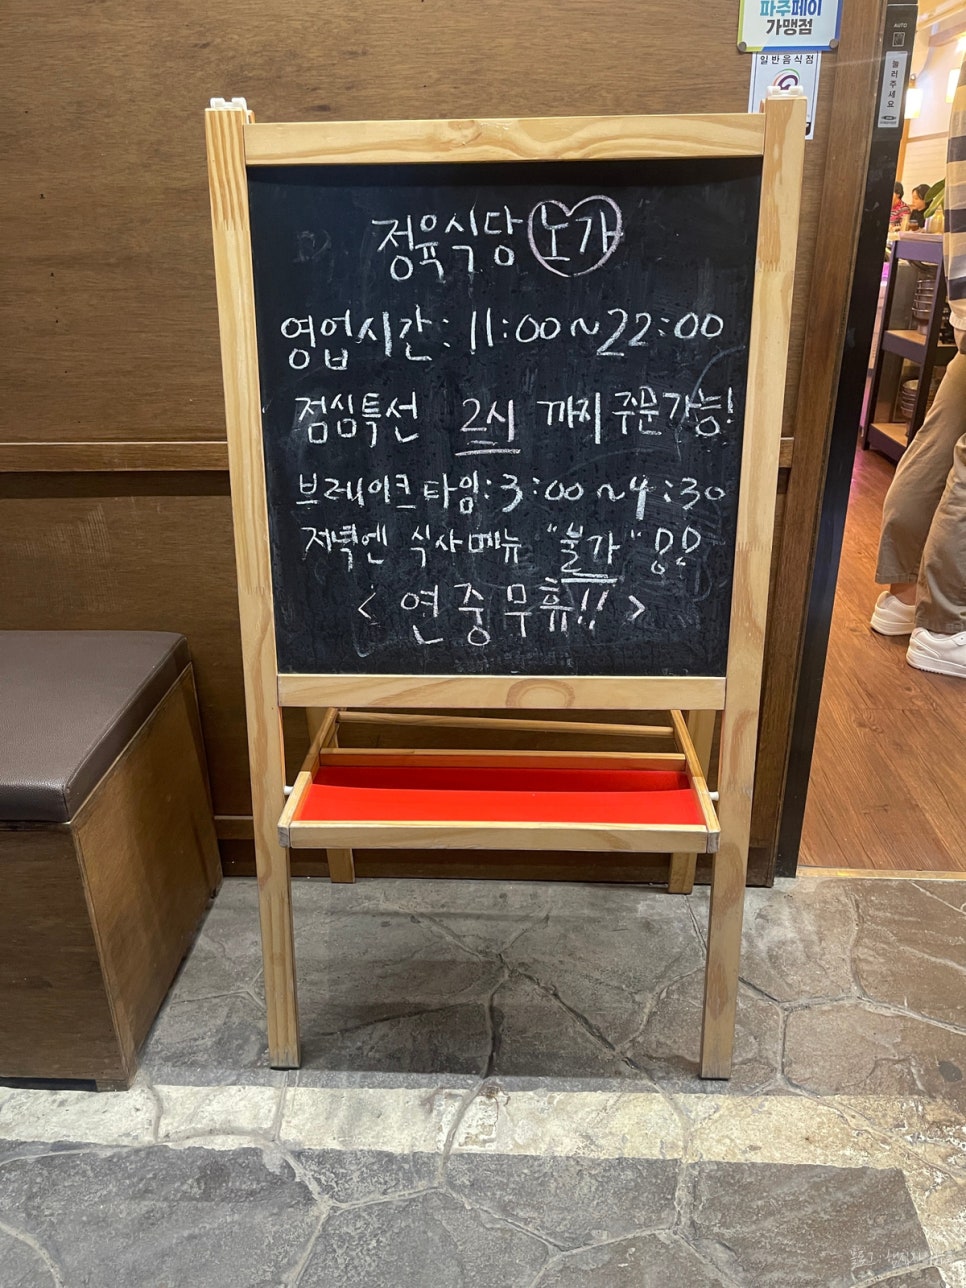 파주페이
가맹점
일반음식점
AUTO
눌러주세요
정육식당 노가
영업시간: 11:00~22:00
점심특선 2시 까지 주문가능!
브레이크타임:3:00~4:30
저녁엔 식사메뉴 "불가"
<연중무휴!!>